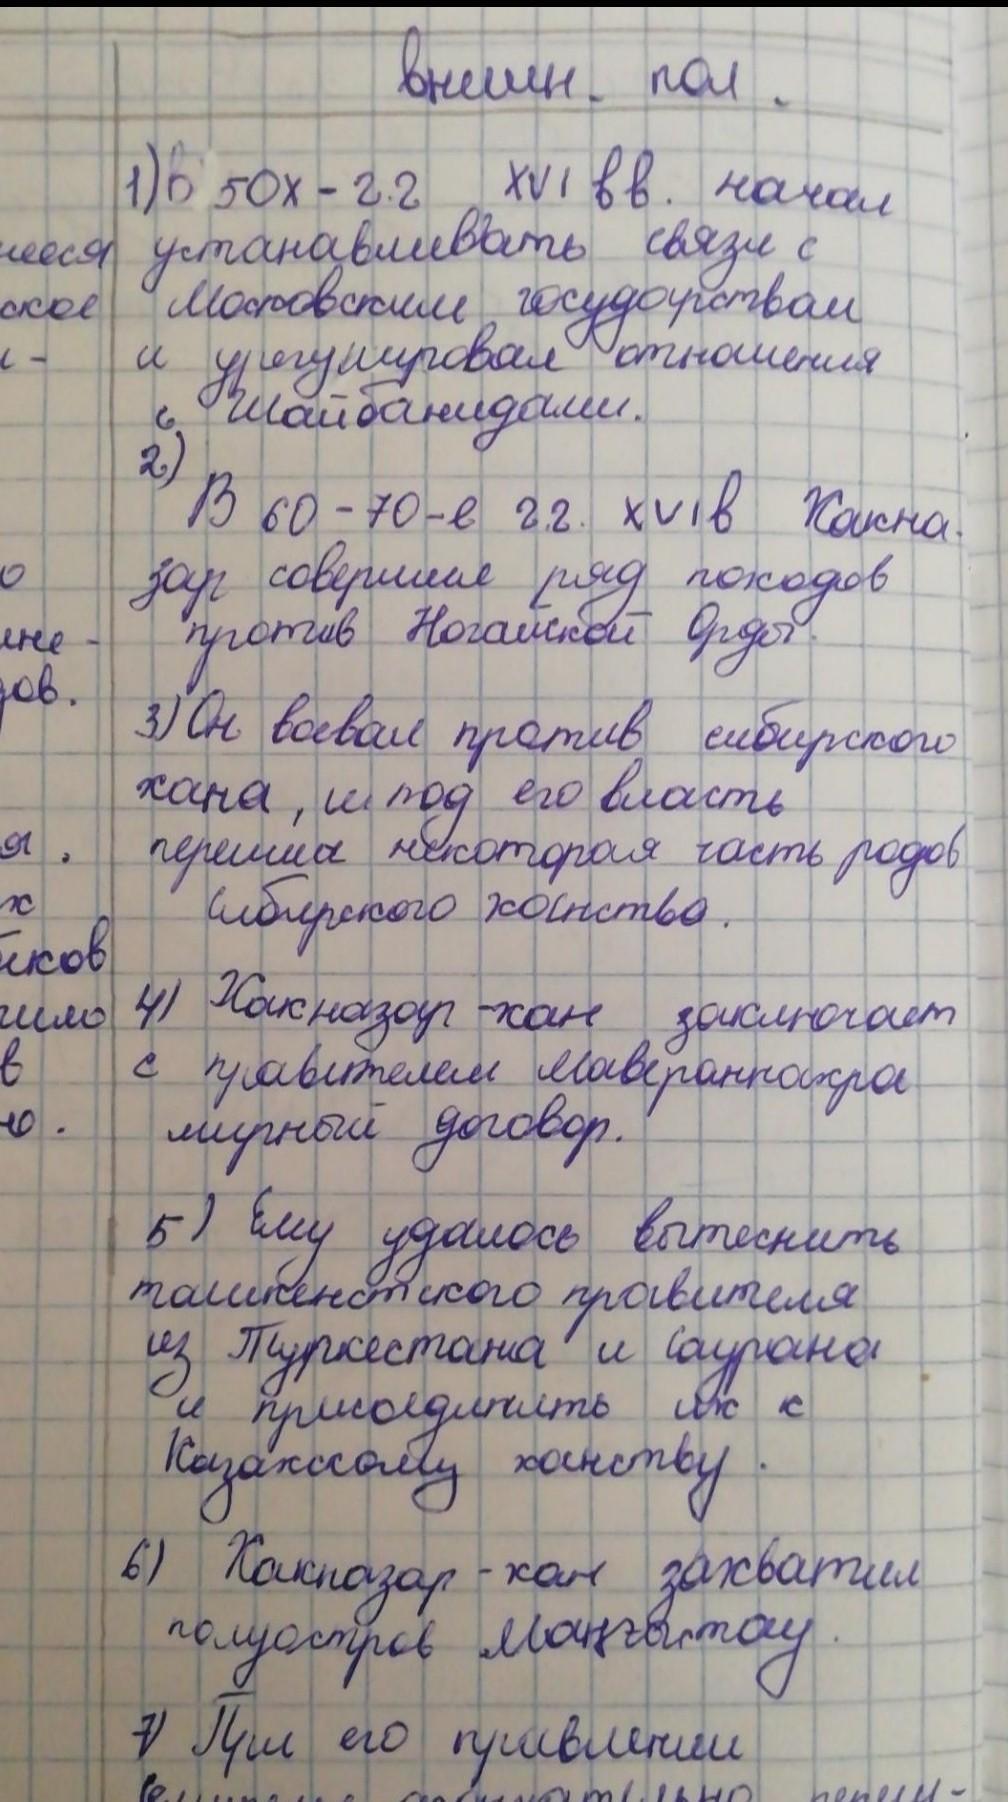 внешн. пол.
1) В 50х-г.г XVI вв. начал
шееся устанавливать связи с
ское Московским государствам
и - и урегулировал отношения
с Шайбанидами.
2)
В 60-70-е г.г. XVIв Хакна-
о зар совершил ряд походов
против Ногайской Орды.
зов.
3) Он воевал против сибирского
хана, и под его власть
я. перешла некоторая часть родов
х Сибирского ханства.
иков
4) Хакназар-хан заключает
в с правителем Мавераннахра
ю. мирный договор.
5) Ему удалось вытеснить
ташкенстского правителя
из Туркестана и Саурана
и присоединить их к
Казахскому ханству.
6) Хакназар-хан захватил
полуостров Маңғыстау.
7) При его правлении